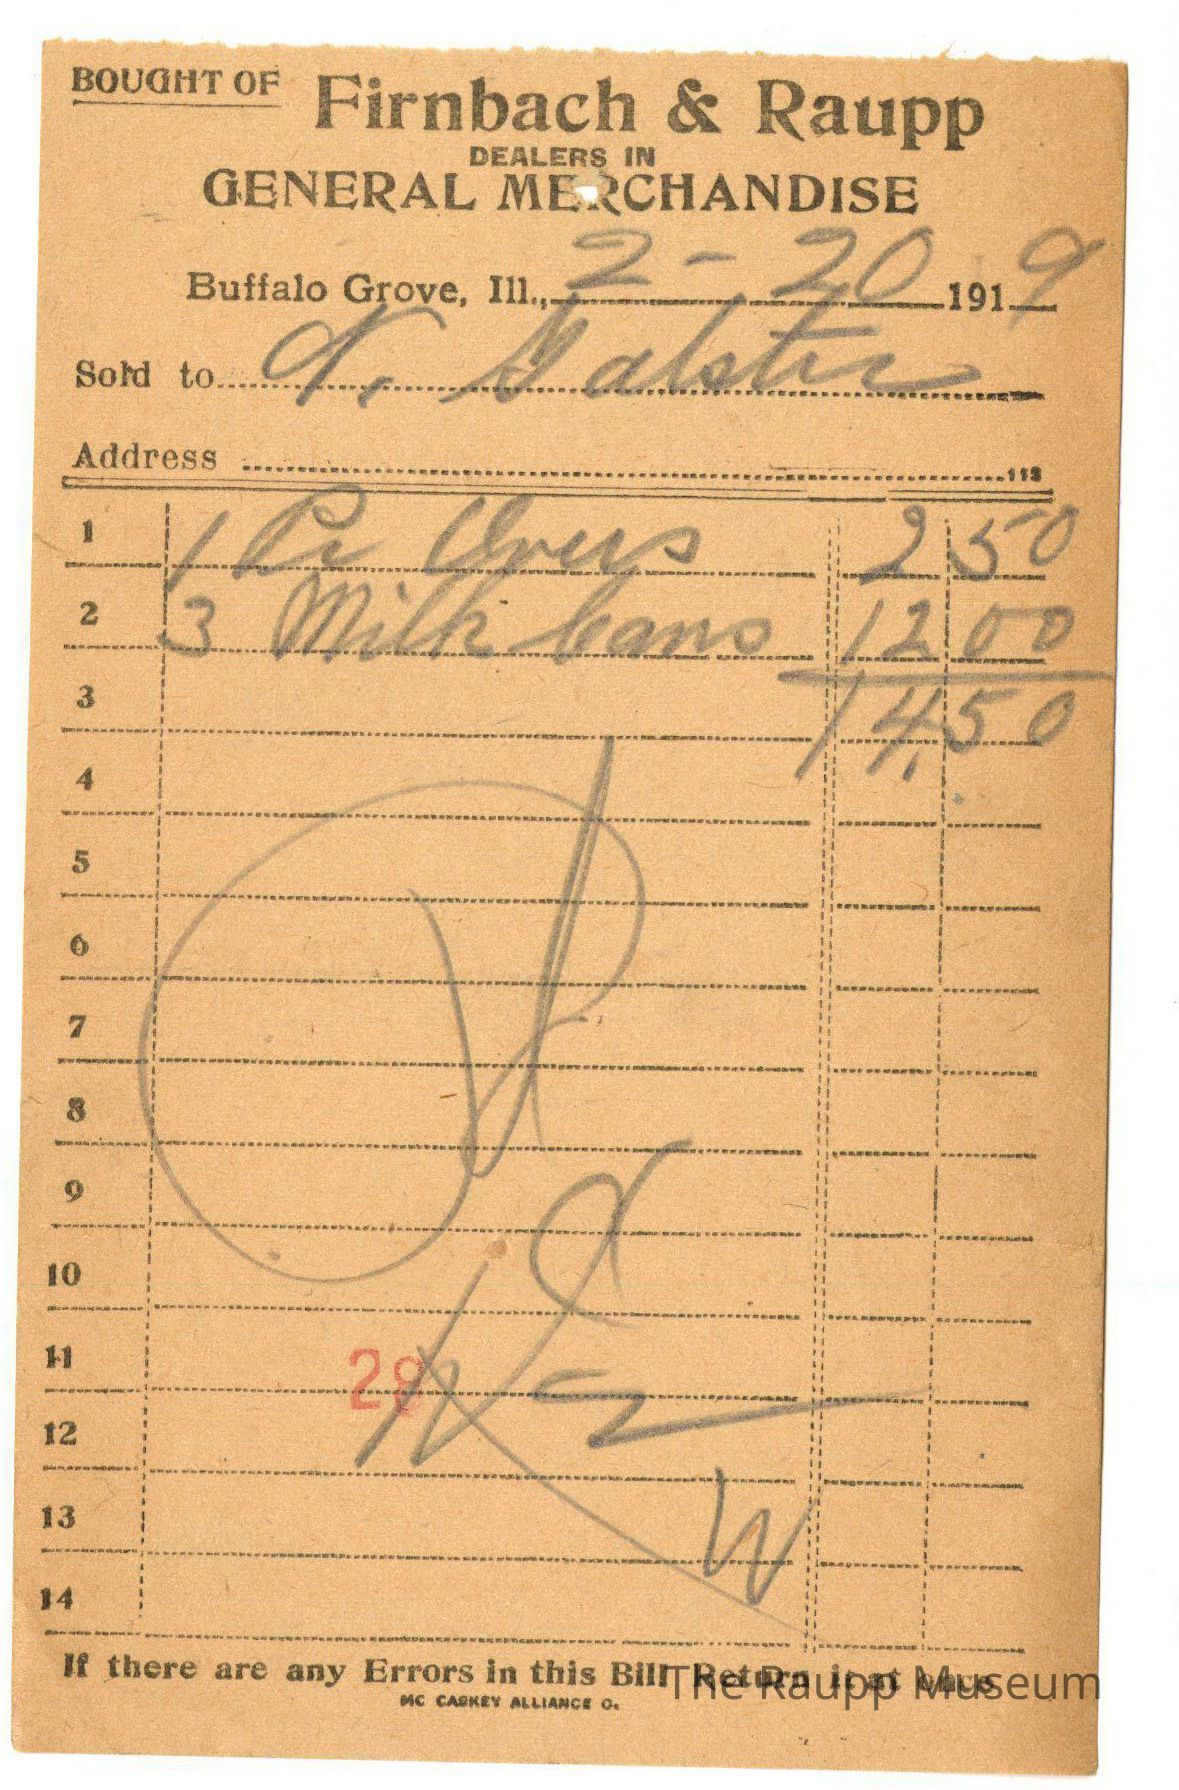 BOUGHT OF Firnbach & Raupp
DEALERS IN
GENERAL MERCHANDISE
Buffalo Grove, Ill., 2-20 1919
Sold to N. Galster
Address 113
1 1 Pr Overs 2 50
2 3 Milk Cans 12 00
3 14,50
4
5
6
7
8
9
10
11
28
12
13
14
If there are any Errors in this Bill Return it at once
The Raupp Museum
MC CASKEY ALLIANCE O.